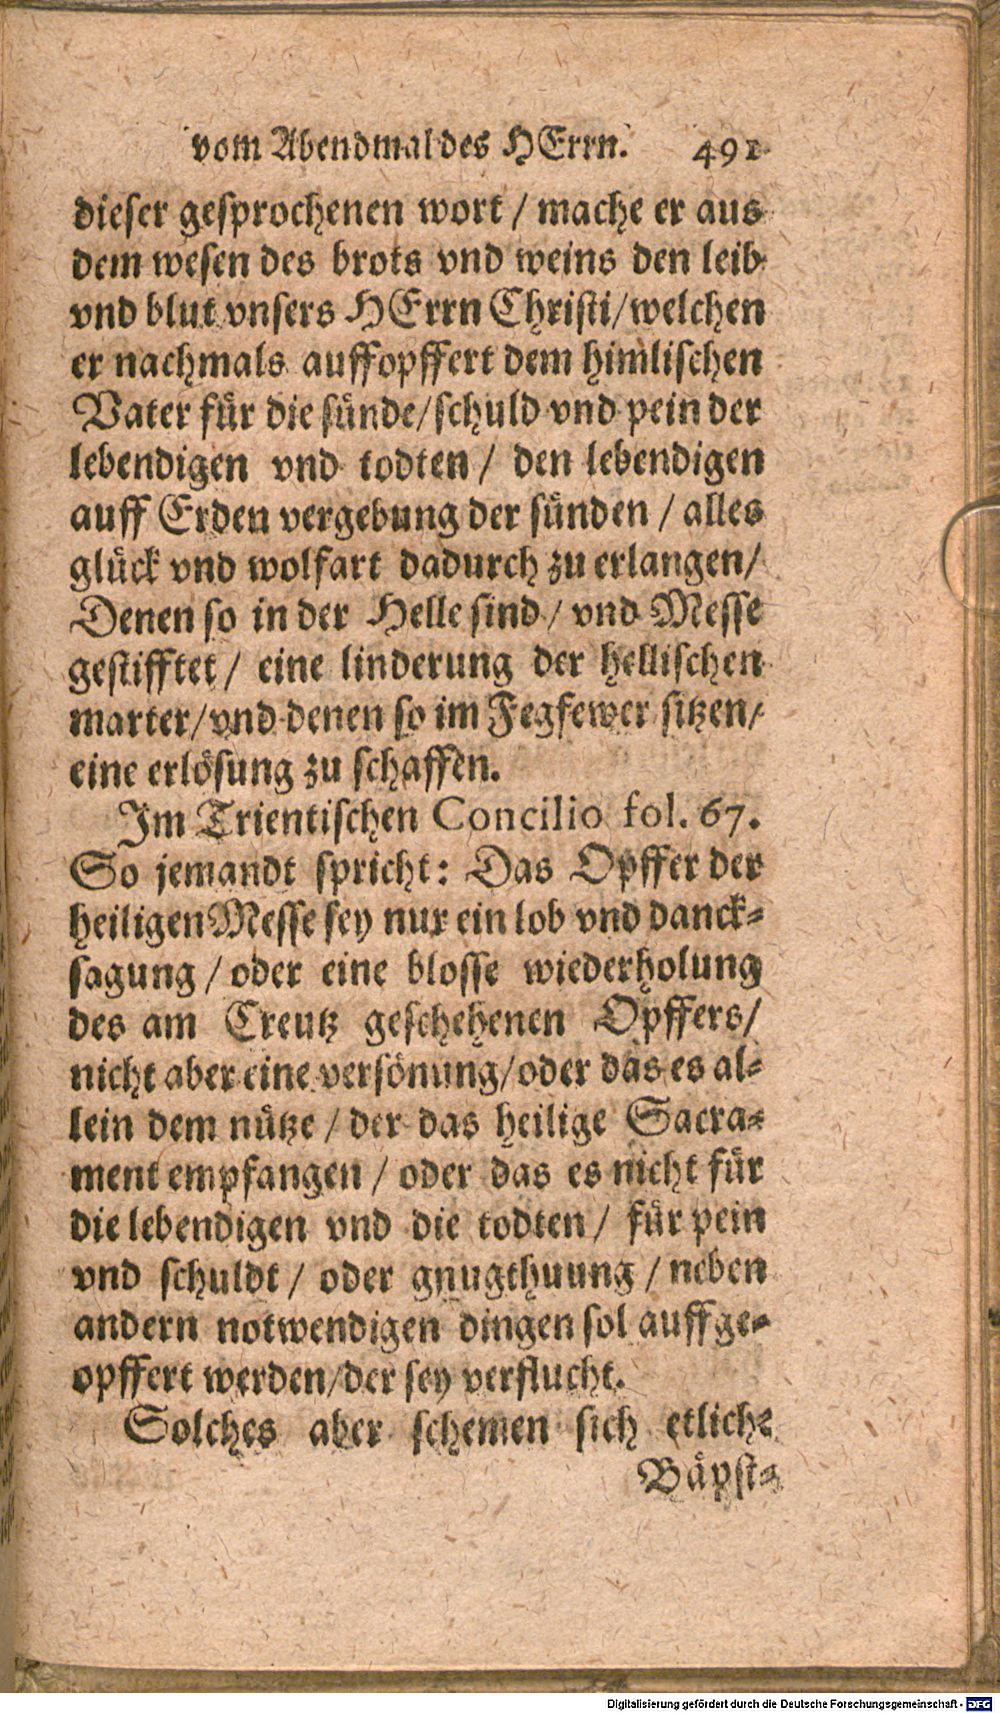 vom Abendmal des HErrn. 491
dieser gesprochenen wort / mache er aus
dem wesen des brots vnd weins den leib
vnd blut vnsers HErrn Christi/welchen
er nachmals auffopffert dem himlischen
Vater für die sünde/schuld vnd pein der
lebendigen vnd todten / den lebendigen
auff Erden vergebung der sünden / alles
glück vnd wolfart dadurch zu erlangen/
Denen so in der Helle sind / vnd Messe
gestifftet / eine linderung der hellischen
marter/vnd denen so im Fegfewer sitzen/
eine erlösung zu schaffen.
Im Trientischen Concilio fol. 67.
So jemandt spricht: Das Opffer der
heiligen Messe sey nur ein lob vnd danck-
sagung / oder eine blosse wiederholung
des am Creutz geschehenen Opffers/
nicht aber eine versönung/oder das es al-
lein dem nütze / der das heilige Sacra-
ment empfangen / oder das es nicht für
die lebendigen vnd die todten / für pein
vnd schuldt / oder gnugthuung / neben
andern notwendigen dingen sol auffge-
opffert werden/der sey verflucht.
Solches aber schemen sich etliche
Bäpst-
Digitalisierung gefördert durch die Deutsche Forschungsgemeinschaft - DFG